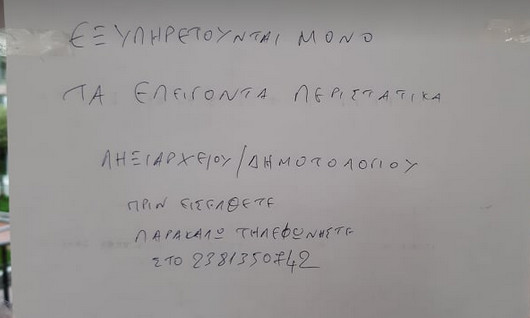 ΕΞΥΠΗΡΕΤΟΥΝΤΑΙ ΜΟΝΟ
ΤΑ ΕΠΕΙΓΟΝΤΑ ΠΕΡΙΣΤΑΤΙΚΑ
ΛΗΞΙΑΡΧΕΙΟΥ/ΔΗΜΟΤΟΛΟΓΙΟΥ
ΠΡΙΝ ΕΙΣΕΛΘΕΤΕ
ΠΑΡΑΚΑΛΩ ΤΗΛΕΦΩΝΗΣΤΕ
ΣΤΟ 2381350742